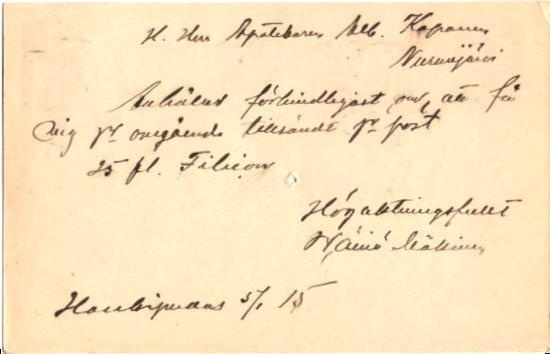 H. Herr Apotekaren Alb. Koponen
Nurmijärvi
Anhåller förbindligast om, att få
mig pr omgående tillsändt pr post
25 fl. Filicon
Högaktningsfullt
Wäinö Mäkinen
Haukipudas 5/1 15